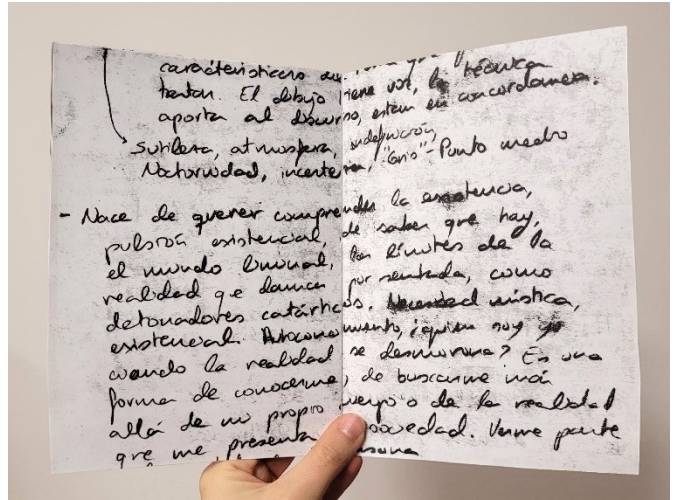 característicos que
tratan. El dibujo tiene voz, la técnica
aporta al discurso, estan en concordancia.
Sutileza, atmosfera, indefinición,
Nocturnidad, "Gris" - Punto medio
- Nace de querer comprender la existencia,
pulsión existencial, de saber que hay,
el mundo liminal, los límites de la
realidad qe damos por sentada, como
detonadores catárticos. Necesidad mística,
existencial. Autoconocimiento, ¿quien soy yo
cuando la realidad se desmorona? Es una
forma de conocerme, de buscarme más
allá de mi propio cuerpo o de la realidad
que me presenta sociedad. Verme parte